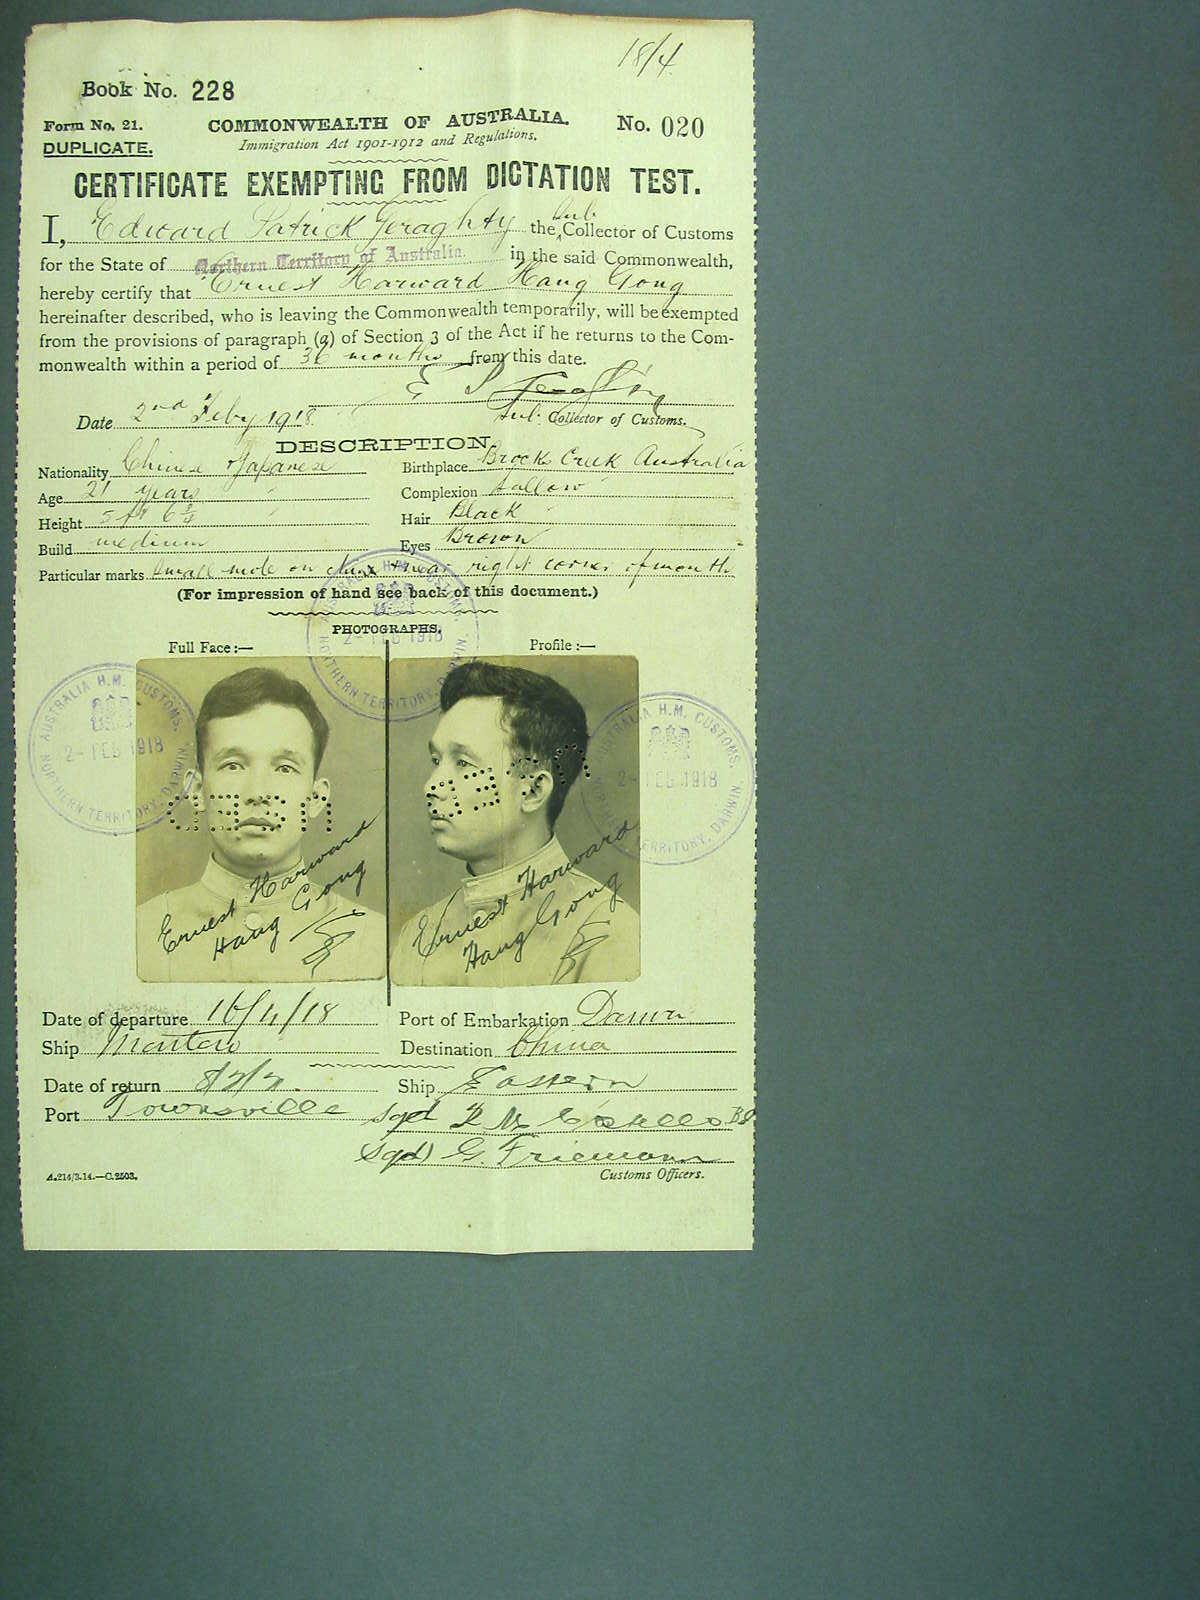 18/4
Book No. 228
Form No. 21.
COMMONWEALTH OF AUSTRALIA.
No. 020
DUPLICATE.
Immigration Act 1901-1912 and Regulations.
CERTIFICATE EXEMPTING FROM DICTATION TEST.
I, Edward Patrick Geraghty the Sub Collector of Customs
for the State of Northern Territory of Australia. in the said Commonwealth,
hereby certify that Ernest Harward Hang Gong
hereinafter described, who is leaving the Commonwealth temporarily, will be exempted
from the provisions of paragraph (a) of Section 3 of the Act if he returns to the Com-
monwealth within a period of 36 months from this date.
Date 2nd Feby 1918
Sub. Collector of Customs.
DESCRIPTION.
Nationality Chinese & Japanese
Birthplace Brocks Creek Australia
Age 21 years
Complexion Sallow
Height 5 ft 6 3/4
Hair Black
Build medium
Eyes Brown
Particular marks Small mole on chin & near right corner of mouth
(For impression of hand see back of this document.)
PHOTOGRAPHS.
Full Face :—
Profile :—
AUSTRALIA H.M. CUSTOMS.
2 - FEB 1918
NORTHERN TERRITORY, DARWIN.
AUSTRALIA H.M. CUSTOMS.
2 - FEB 1918
NORTHERN TERRITORY, DARWIN.
AUSTRALIA H.M. CUSTOMS.
2 - FEB 1918
TERRITORY, DARWIN.
Ernest Harward
Hang Gong
Ernest Harward
Hang Gong
Date of departure 16/4/18
Port of Embarkation Darwin
Ship Montoro
Destination China
Date of return
Ship Eastern
Port Townsville
Sgd
(Sgd) G. Friemann
A.214/3.14.—C.2503.
Customs Officers.